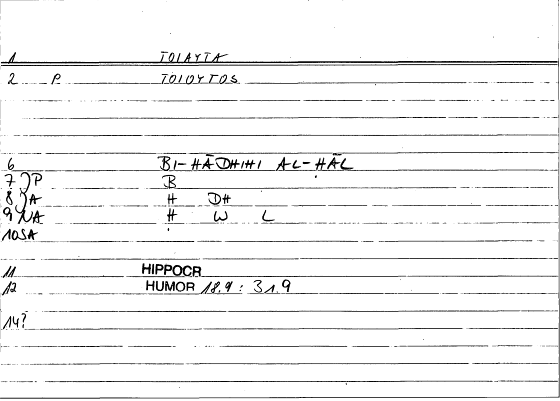 1 TOIAYTA
2 P TOIOYTOS
6 BI-HĀDHIHI AL-ḤĀL
7 P B
8 A H DH
9 NA Ḥ W L
10 SA
11 HIPPOCR
12 HUMOR 18.9 : 31.9
14?